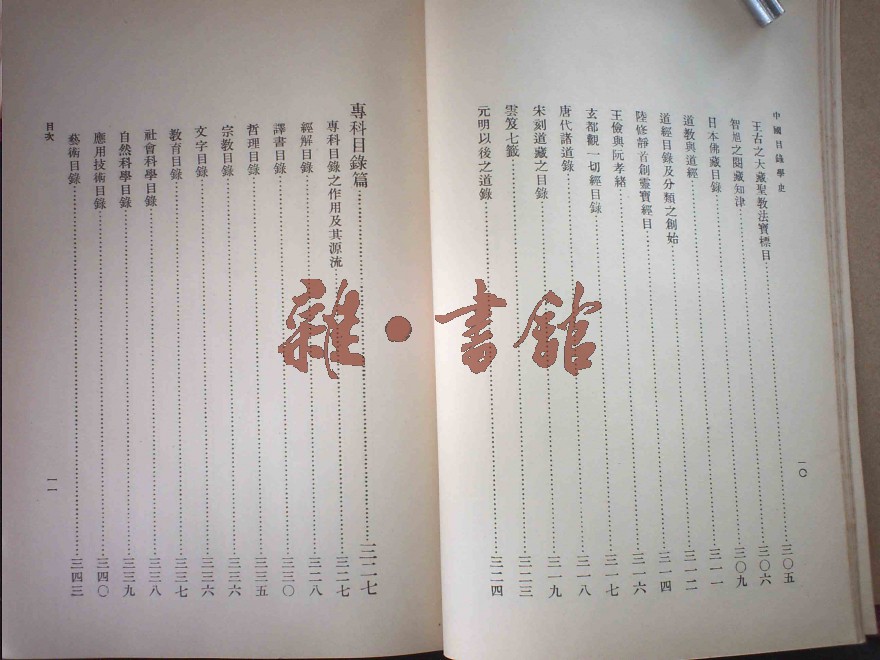 中國目錄學史
一〇
王古之大藏聖教法寶標目……三〇五
智旭之閱藏知津……三〇六
日本佛藏目錄……三〇九
道教與道經……三一一
道經目錄及分類之創始……三一二
陸修靜首創靈寶經目……三一四
王儉與阮孝緒……三一六
玄都觀一切經目錄……三一七
唐代諸道錄……三一八
宋刻道藏之目錄……三一九
雲笈七籤……三二三
元明以後之道錄……三二四
專科目錄篇……三二七
專科目錄之作用及其源流……三二七
經解目錄……三二八
譯書目錄……三三〇
哲理目錄……三三五
宗教目錄……三三六
文字目錄……三三六
教育目錄……三三七
社會科學目錄……三三八
自然科學目錄……三三九
應用技術目錄……三四〇
藝術目錄……三四三
目次
一一
雜·書館